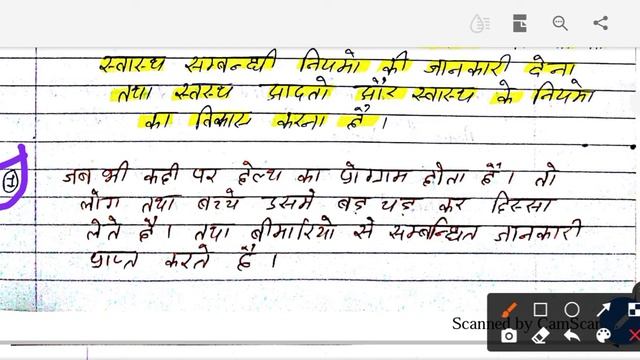 स्वास्थ सम्बन्धी नियमो की जानकारी देना
तथा स्वस्थ आदतो और स्वास्थ के नियमो
का विकास करना है।
(1) जब भी कही पर हेल्थ का प्रोग्राम होता है। तो
लोग तथा बच्चे उसमे बड़ चड़ कर हिस्सा
लेते है। तथा बीमारियो से सम्बन्धित जानकारी
प्राप्त करते है।
Scanned by CamScan